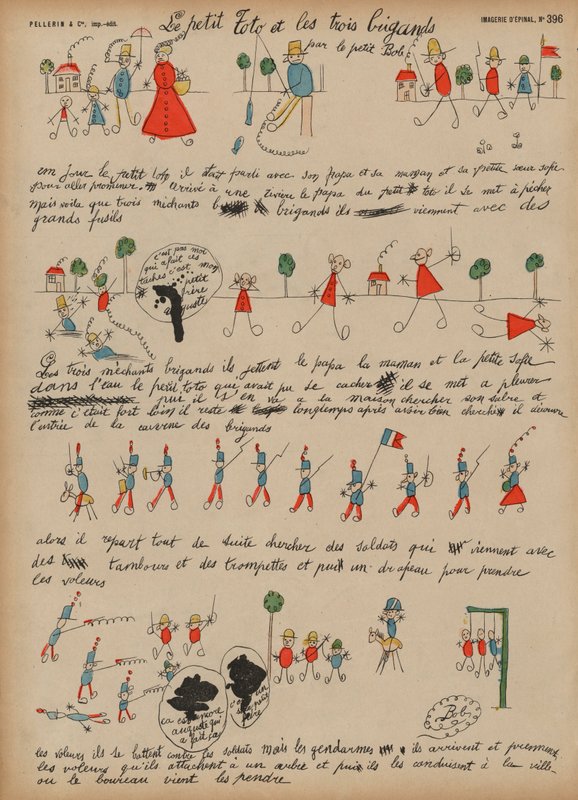 PELLERIN & Cie, imp.-édit.
IMAGERIE D'ÉPINAL, No 396
Le petit Toto et les trois brigands
par le petit Bob
un jour le petit toto il était parti avec son papa et sa maman et sa petite sœur sofie
pour aller promener arrivé à une rivière le papa du petit toto il se met à pécher
mais voila que trois méchants brigands ils viennent avec des
grands fusils
c'est pas moi
qui a fait ces
taches c'est mon
petit
frère
auguste
Les trois méchants brigands ils jettent le papa la maman et la petite sofie
dans l'eau le petit toto qui avait pu se cacher il se met a pleurer
puit il s'en va a sa maison chercher son sabre et
comme c'était fort loin il reste longtemps après avoir bien cherché il découvre
l'entrée de la caverne des brigands
alors il repart tout de suite chercher des soldats qui viennent avec
des tambours et des trompettes et puit un drapeau pour prendre
les voleurs
ça c'est encore
auguste qui
a fait ça
Bob
les voleurs ils se battent contre les soldats mais les gendarmes ils arrivent et prennent
les voleurs qu'ils attachent à un arbre et puis ils les conduisent à la ville
ou le boureau vient les pendre